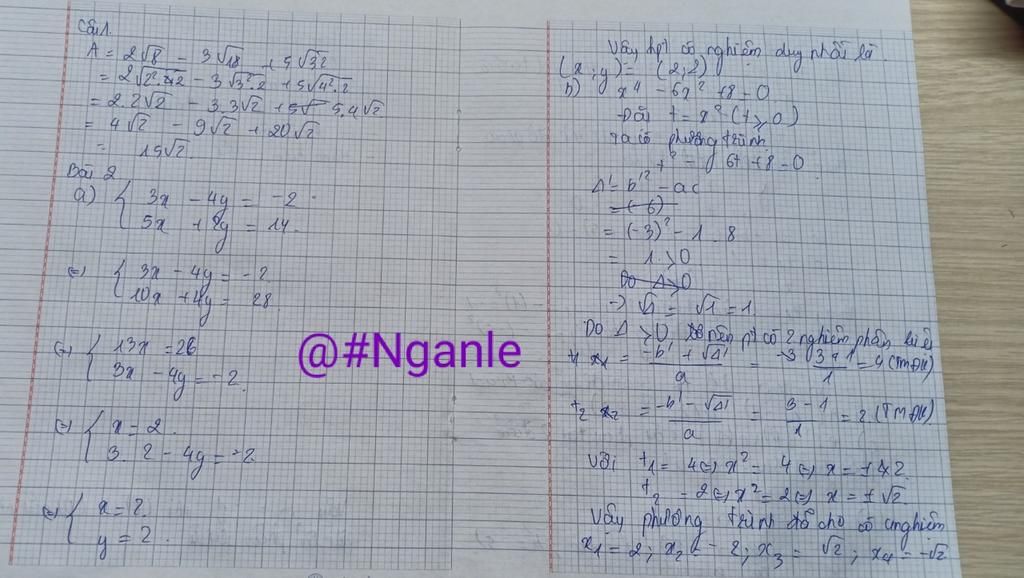 Câu 1.
A = 2√8 - 3√18 + 5√32
= 2√2².2 - 3√3².2 + 5√4².2
= 2.2√2 - 3.3√2 + 5√ 5.4√2
= 4√2 - 9√2 + 20√2
= 15√2.
Bài 2
a) { 3x - 4y = -2
5x + 2y = 14.
(=) { 3x - 4y = -2
10x + 4y = 28.
(=) { 13x = 26
3x - 4y = -2.
(=) { x = 2.
3. 2 - 4y = -2
(=) { x = 2.
y = 2.
@#Nganle
Vậy hpt có nghiệm duy nhất là
(x;y) = (2;2)
b) x⁴ - 6x² + 8 = 0
Đặt t = x² (t ≥ 0)
Ta có phương trình
t² - 6t + 8 = 0
Δ' = b'² - ac
= (-6)
= (-3)² - 1.8
= 1 > 0
Do Δ > 0
=> √Δ' = √1 = 1
Do Δ' > 0, nên pt có 2 nghiệm phân biệt
t₁ = -b' + √Δ' / a = 3 + 1 / 1 = 4 (TMĐK)
t₂ x₂ = -b' - √Δ' / a = 3 - 1 / 1 = 2 (TMĐK)
Với t₁ = 4 (=) x² = 4 (=) x = ± 2
t₂ = 2 (=) x² = 2 (=) x = ± √2
Vậy phương trình đã cho có 4 nghiệm
x₁ = 2; x₂ = - 2; x₃ = √2; x₄ = -√2